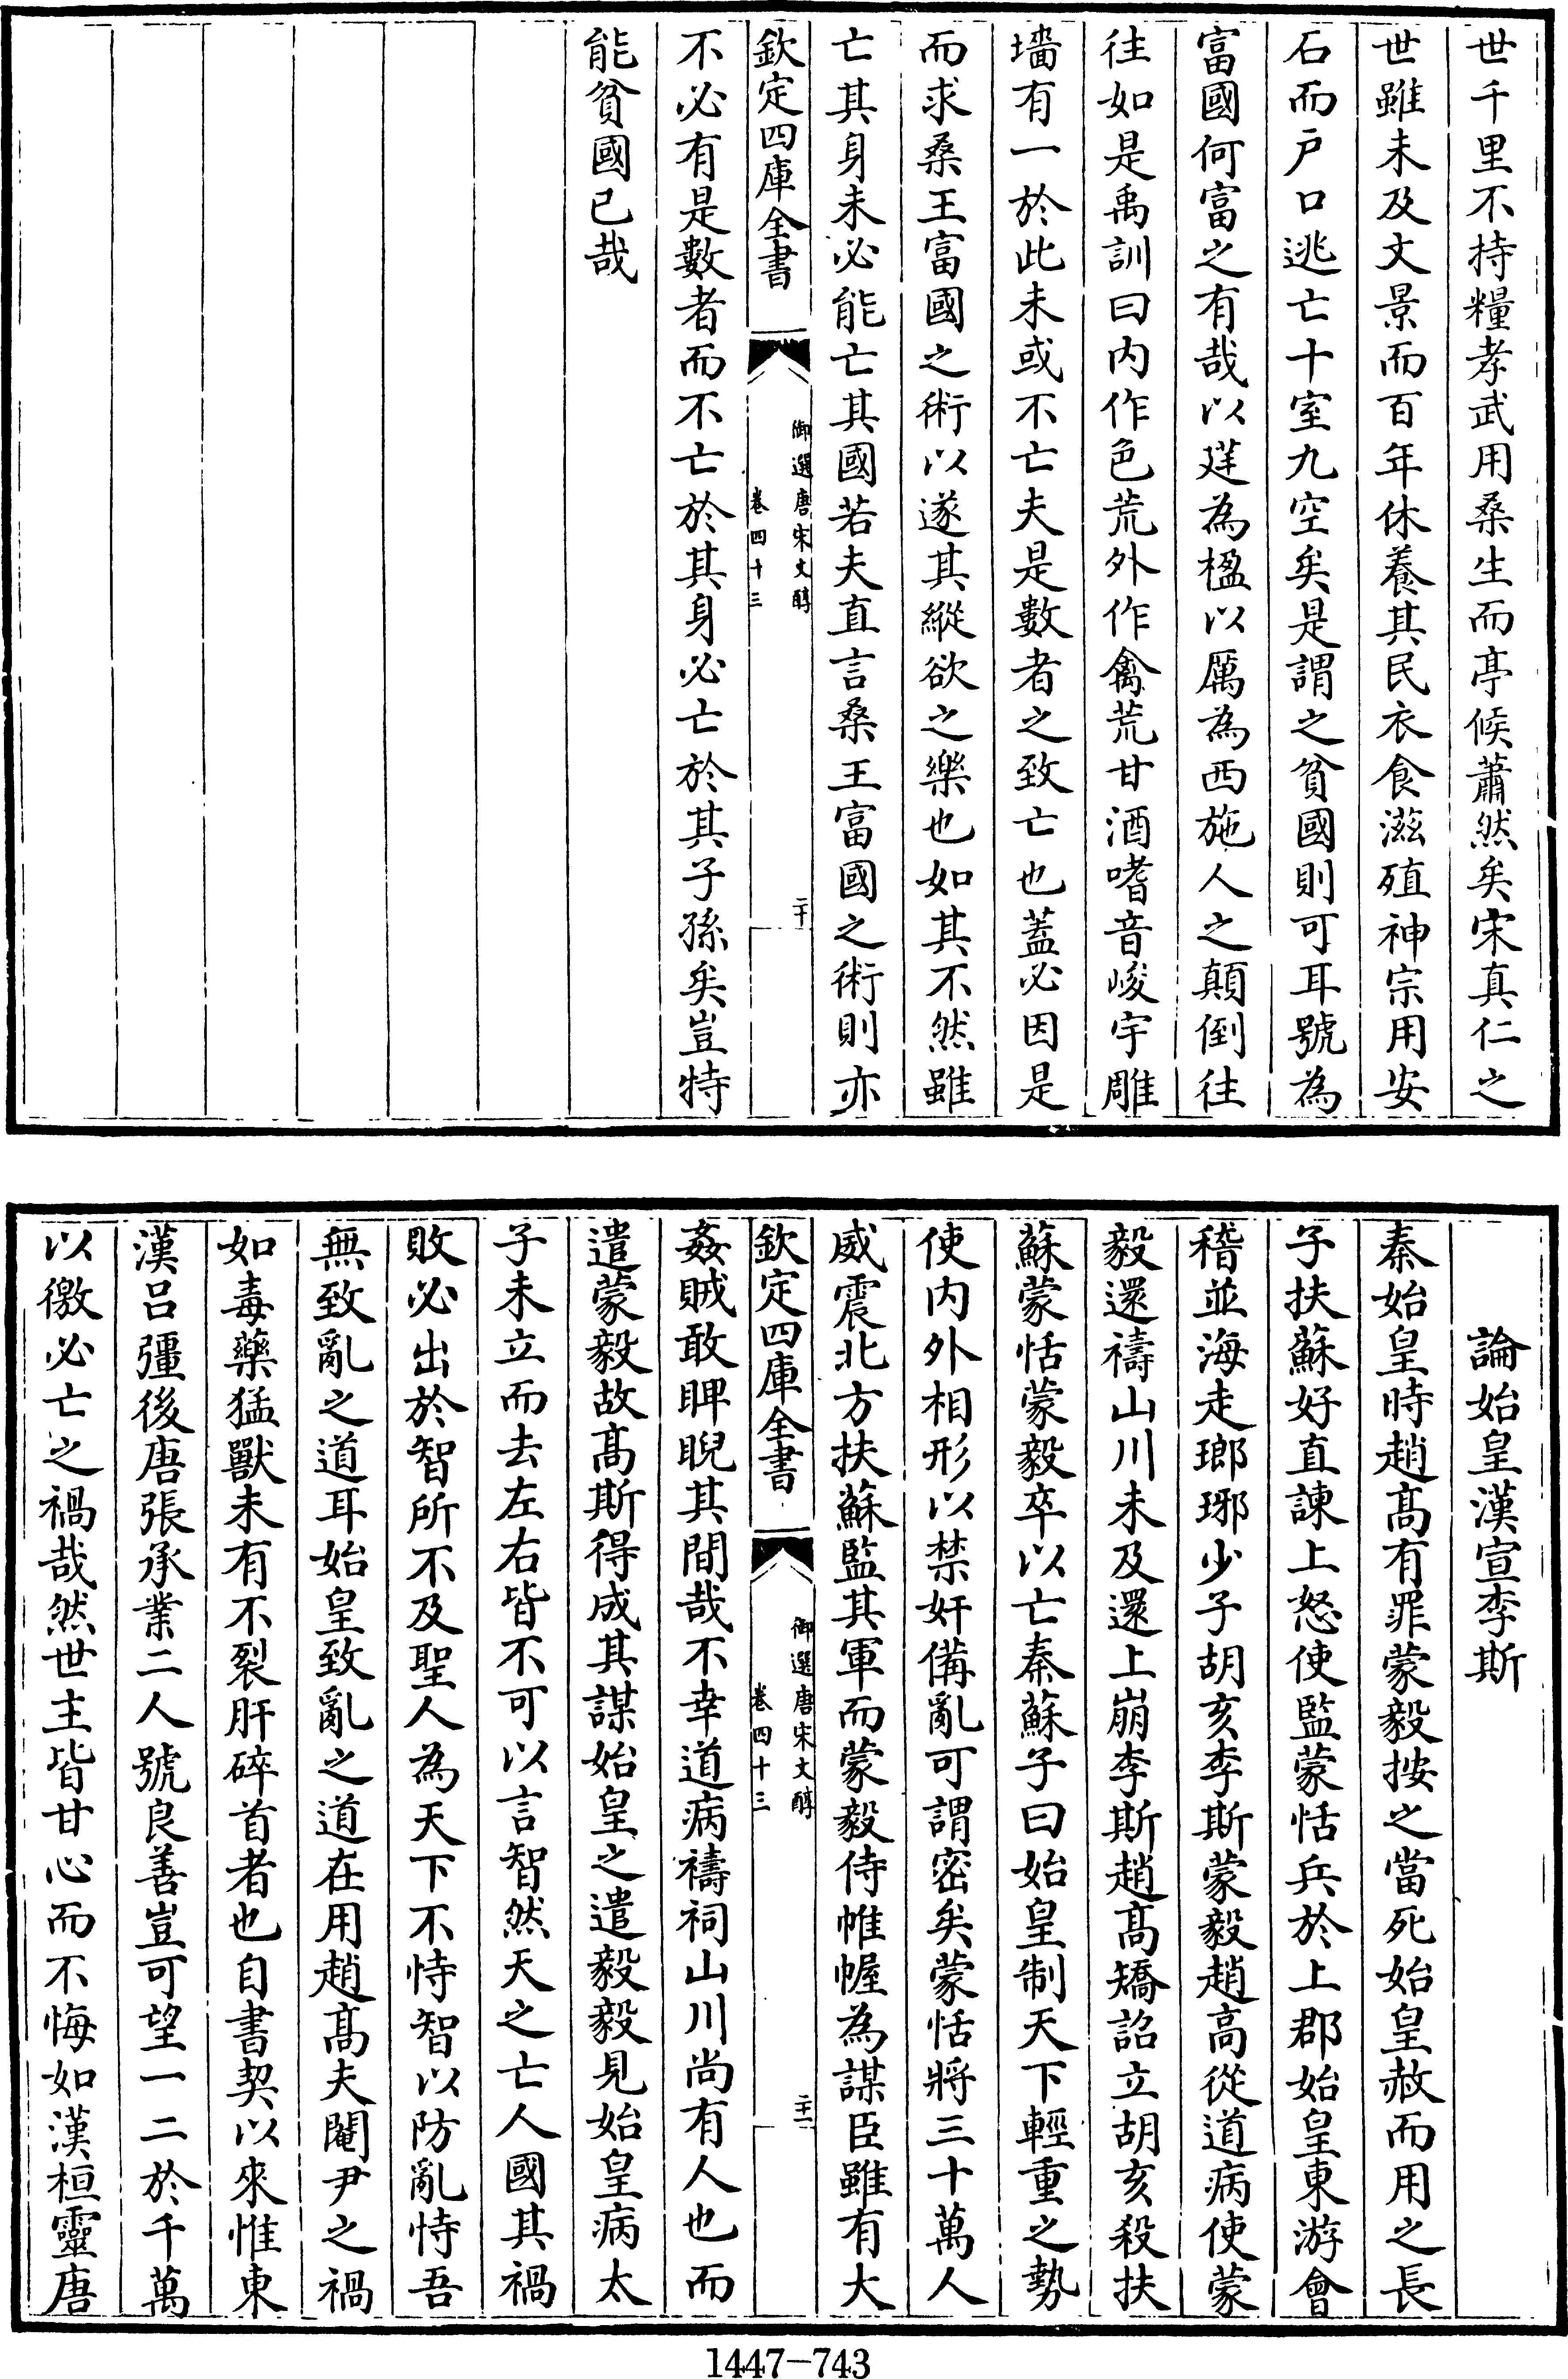 世千里不持糧孝武用桑生而亭候蕭然矣宋真仁之
世雖未及文景而百年休養其民衣食滋殖神宗用安
石而戶口逃亡十室九空矣是謂之貧國則可耳號為
富國何富之有哉以莛為楹以厲為西施人之顛倒往
往如是禹訓曰内作色荒外作禽荒甘酒嗜音峻宇雕
墻有一於此未或不亡夫是數者之致亡也蓋必因是
而求桑王富國之術以遂其縱欲之樂也如其不然雖
亡其身未必能亡其國若夫直言桑王富國之術則亦
欽定四庫全書
御選唐宋文醇
卷四十三
二十
不必有是數者而不亡於其身必亡於其子孫矣豈特
能貧國已哉
論始皇漢宣李斯
秦始皇時趙髙有罪蒙毅按之當死始皇赦而用之長
子扶蘇好直諫上怒使監蒙恬兵於上郡始皇東游會
稽並海走瑯琊少子胡亥李斯蒙毅趙高從道病使蒙
毅還禱山川未及還上崩李斯趙髙矯詔立胡亥殺扶
蘇蒙恬蒙毅卒以亡秦蘇子曰始皇制天下輕重之勢
使内外相形以禁奸備亂可謂密矣蒙恬將三十萬人
威震北方扶蘇監其軍而蒙毅侍帷幄為謀臣雖有大
欽定四庫全書
御選唐宋文醇
卷四十三
二十一
姦賊敢睥睨其間哉不幸道病禱祠山川尚有人也而
遣蒙毅故髙斯得成其謀始皇之遣毅毅見始皇病太
子未立而去左右皆不可以言智然天之亡人國其禍
敗必出於智所不及聖人為天下不恃智以防亂恃吾
無致亂之道耳始皇致亂之道在用趙髙夫閹尹之禍
如毒藥猛獸未有不裂肝碎首者也自書契以來惟東
漢吕彊後唐張承業二人號良善豈可望一二於千萬
以徼必亡之禍哉然世主皆甘心而不悔如漢桓靈唐
1447-743